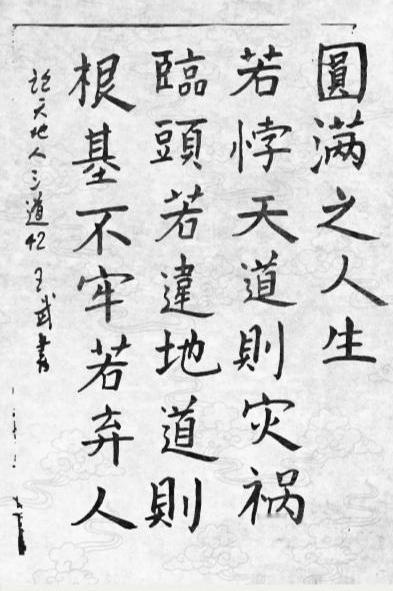 圓满之人生
若悖天道則灾祸
臨頭若違地道則
根基不牢若弃人
论天地人三道42 王武書